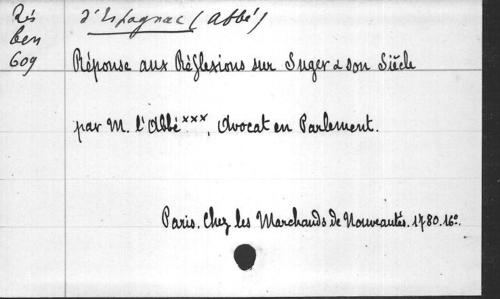 Rés
ben
609
d'Espagnac (abbé)
Réponse aux Réflexions sur Suger & son Siècle
par M. l'Abbé xxx, Avocat en Parlement.
Paris. Chez les Marchands de Nouveautés. 1780. 16º.